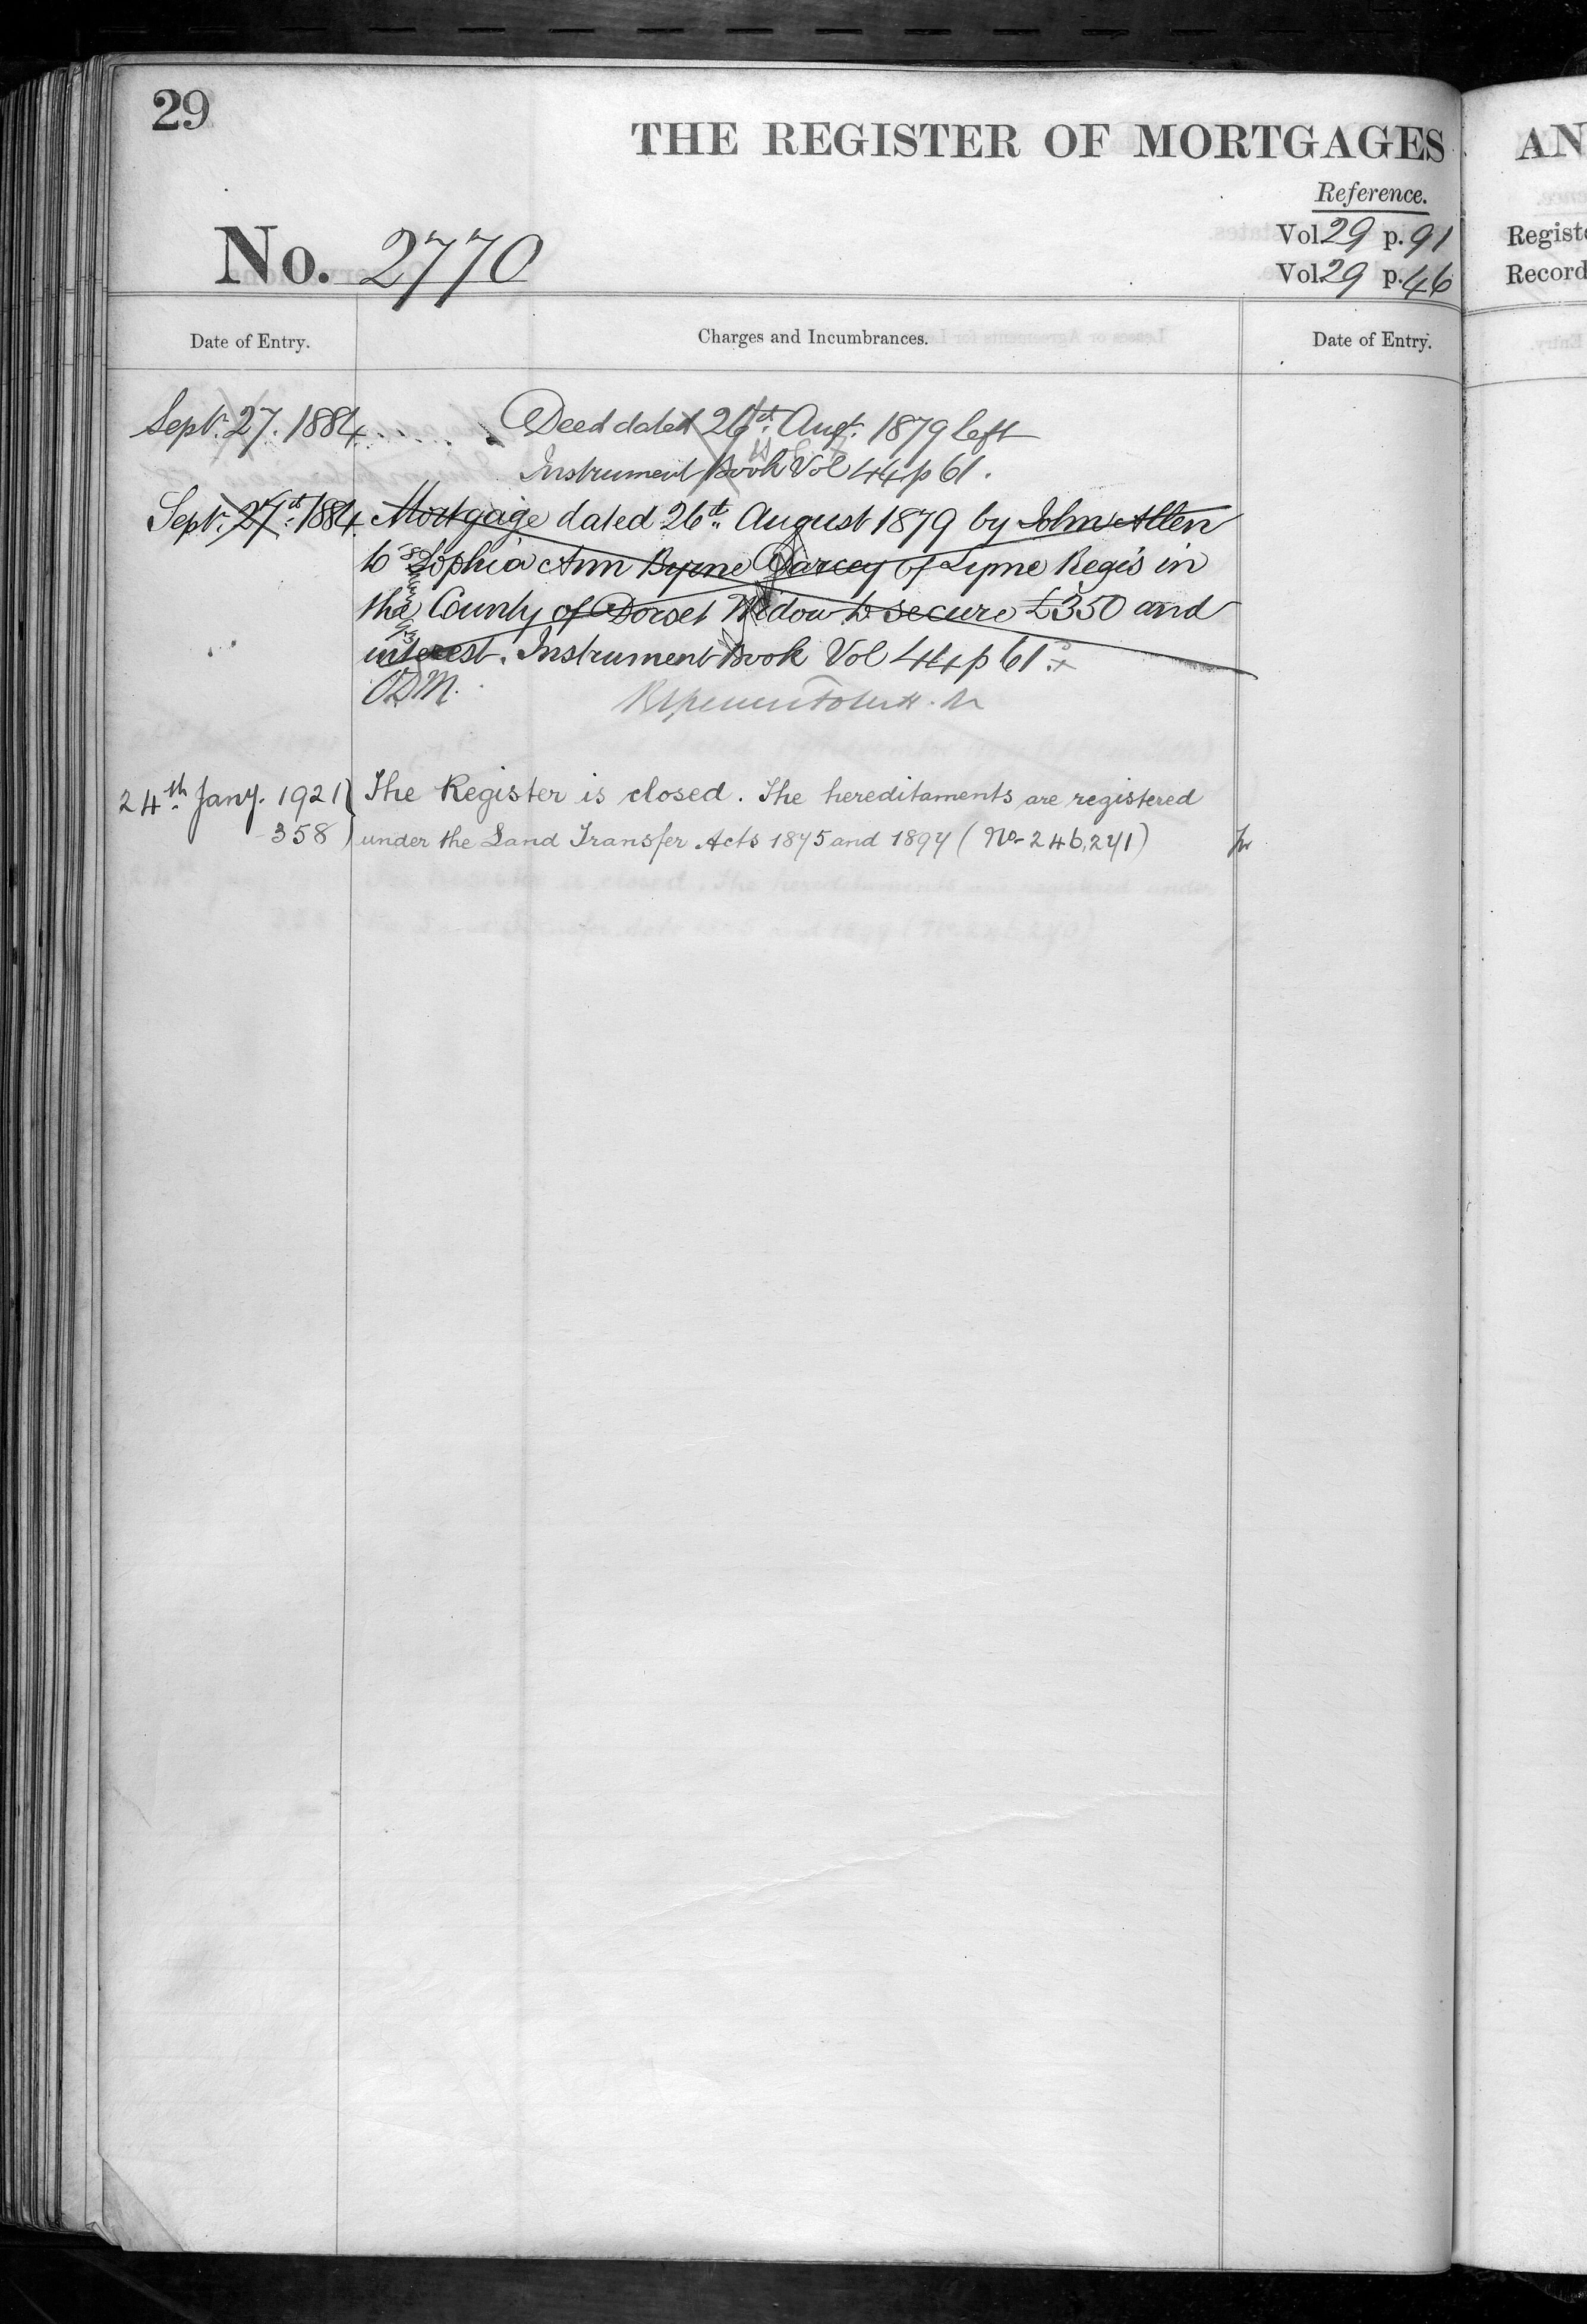 29
THE REGISTER OF MORTGAGES
AN
Reference.
No. 2770
Vol 29 p. 91
Vol 29 p. 46
Registe
Record
Date of Entry.
Charges and Incumbrances.
Date of Entry.
Sept. 27. 1884 Deed dated 26th Augt. 1879 left
Instrument Book Vol 44 p 61.
Sept. 27th 1884 Mortgage dated 26th August 1879 by John Allen
to Sophia Ann Byrne Darcey of Lyme Regis in
the County of Dorset Widow to secure £350 and
interest. Instrument Book Vol 44 p 61.
24th Jany. 1921 The Register is closed. The hereditaments are registered
358 under the Land Transfer Acts 1875 and 1897 (No 246,271)